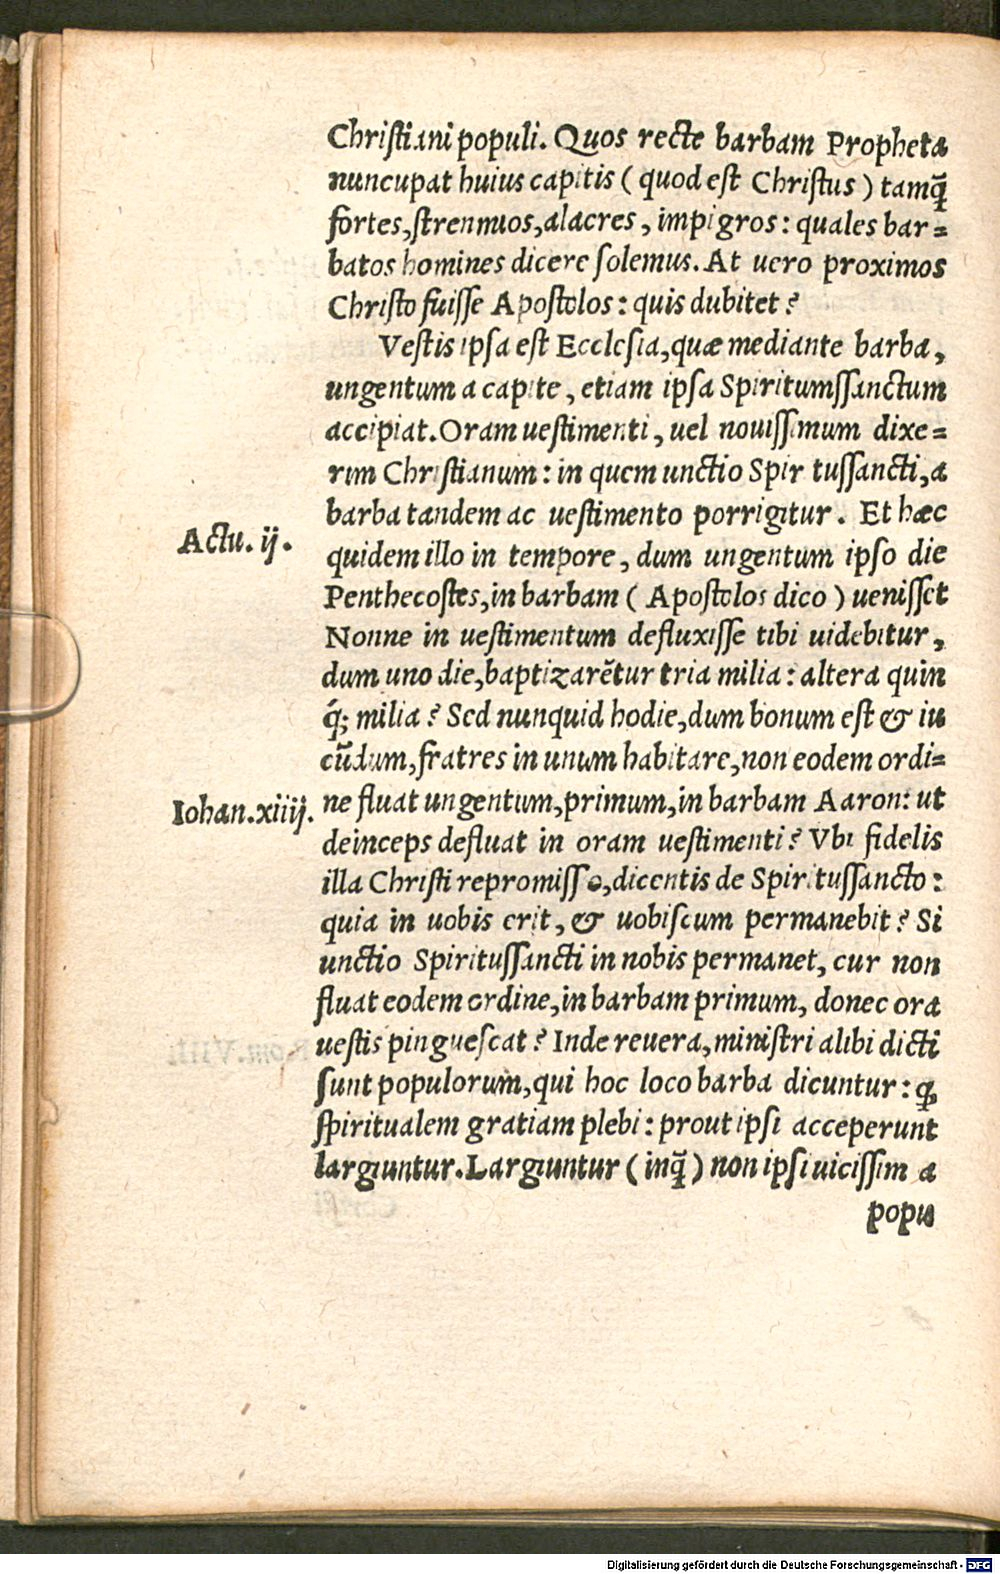 Chriſtiani populi. Quos recte barbam Propheta
nuncupat huius capitis ( quod est Chriſtus ) tamq̃
fortes, ſtrennuos, alacres, impigros: quales bar=
batos homines dicere ſolemus. At uero proximos
Chriſto fuiſſe Apoſtolos: quis dubitet?
Veſtis ipſa eſt Eccleſia, quæ mediante barba,
ungentum a capite, etiam ipſa Spiritumſſanctum
accipiat. Oram ueſtimenti, uel nouiſſimum dixe=
rim Chriſtianum: in quem unctio Spiritusſancti, a
barba tandem ac ueſtimento porrigitur. Et hæc
Actu. ij.
quidem illo in tempore, dum ungentum ipſo die
Penthecoſtes, in barbam ( Apoſtolos dico ) ueniſſet
Nonne in ueſtimentum defluxiſſe tibi uidebitur,
dum uno die, baptizarētur tria milia: altera quin
q̃; milia? Sed nunquid hodie, dum bonum eſt & iu
cūdum, fratres in unum habitare, non eodem ordi=
Iohan. xiiij.
ne fluat ungentum, primum, in barbam Aaron: ut
deinceps defluat in oram ueſtimenti? Vbi fidelis
illa Chriſti repromiſſio, dicentis de Spiritusſancto:
quia in uobis erit, & uobiſcum permanebit? Si
unctio Spiritusſancti in nobis permanet, cur non
fluat eodem ordine, in barbam primum, donec ora
ueſtis pingueſcat? Inde reuera, miniſtri alibi dicti
ſunt populorum, qui hoc loco barba dicuntur: ꝙ
ſpiritualem gratiam plebi: prout ipſi acceperunt
largiuntur. Largiuntur ( inq̃ ) non ipſi uiciſſim a
popu
Digitalisierung gefördert durch die Deutsche Forschungsgemeinschaft - DFG